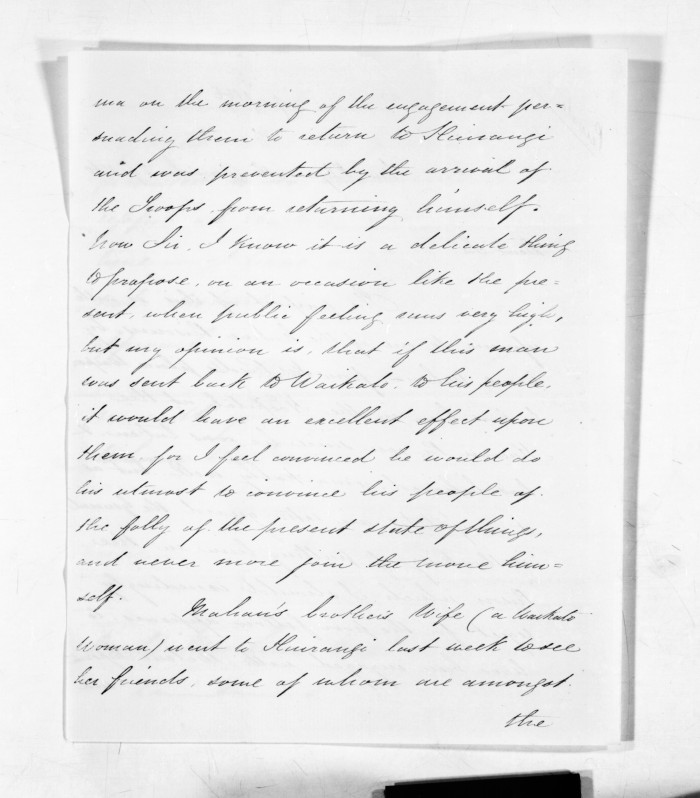 ma on the morning of the engagement per=
suading them to return to Huirangi
and was prevented by the arrival of
the Troops from returning himself.
Now Sir, I know it is a delicate thing
to propose, on an occasion like the pre=
sent, when public feeling runs very high,
but my opinion is, that if this man
was sent back to Waikato, to his people,
it would have an excellent effect upon
them, for I feel convinced he would do
his utmost to convince his people of
the folly of the present state of things,
and never more join the move him=
self.
Mahau's brother's Wife (a Waikato
Woman) went to Huirangi last week to see
her friends, some of whom are amongst
the